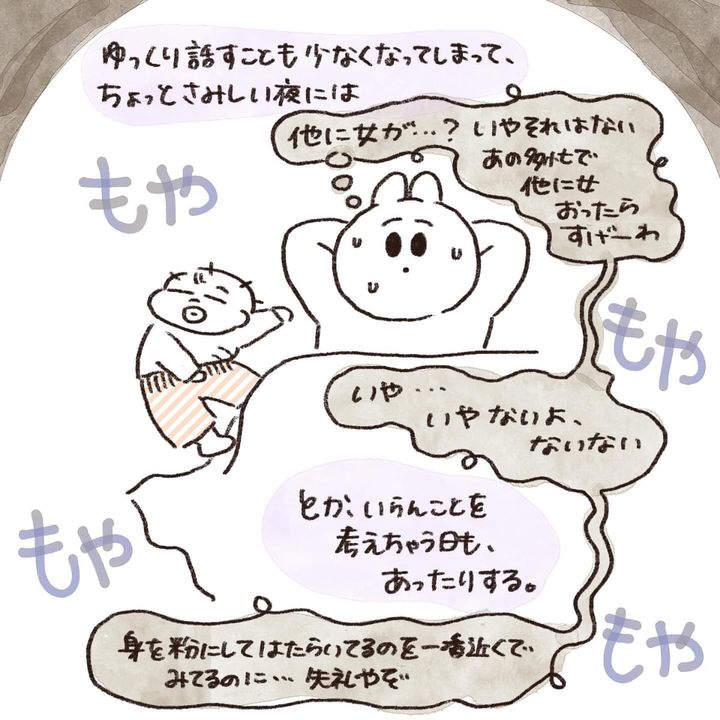 ゆっくり話すことも少なくなってしまって、
ちょっとさみしい夜には
他に女が…？いやそれはない
あの多忙で
他に女
おったら
すげーわ
もや
もや
いや…
いやないよ、
ないない
とか、いらんことを
考えちゃう日も、
あったりする。
もや
もや
身を粉にしてはたらいてるのを一番近くで
みてるのに…失礼やぞ